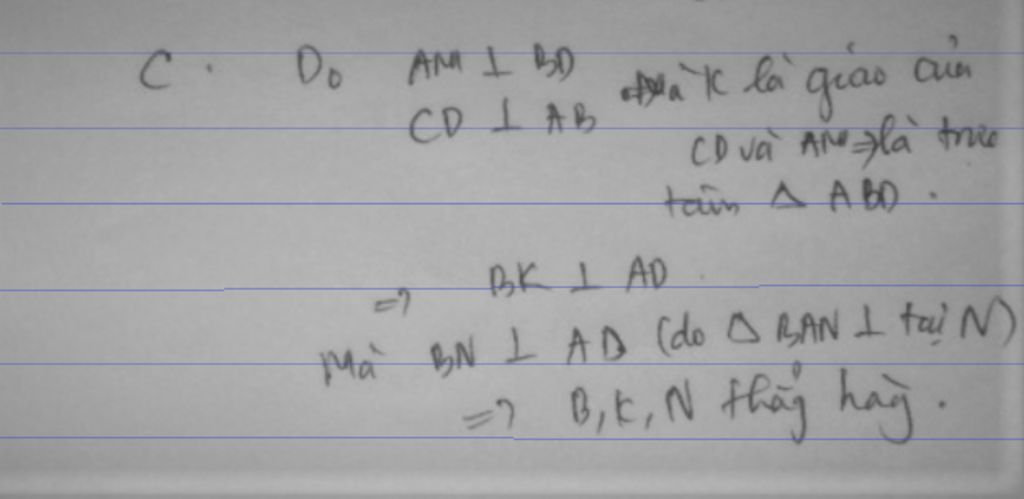 C. Do AM ⊥ BD
CD ⊥ AB mà K là giao của
CD và AM => là trực
tâm Δ ABD.
=> BK ⊥ AD
Mà BN ⊥ AD (do Δ BAN ⊥ tại N)
=> B, K, N thẳg hàg.